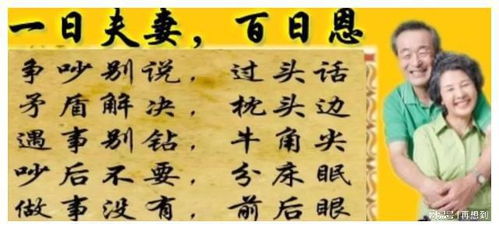 一日夫妻，百日恩
争吵别说，过头话
矛盾解决，枕头边
遇事别钻，牛角尖
吵后不要，分床眠
做事没有，前后眼
搜狐号|再想到